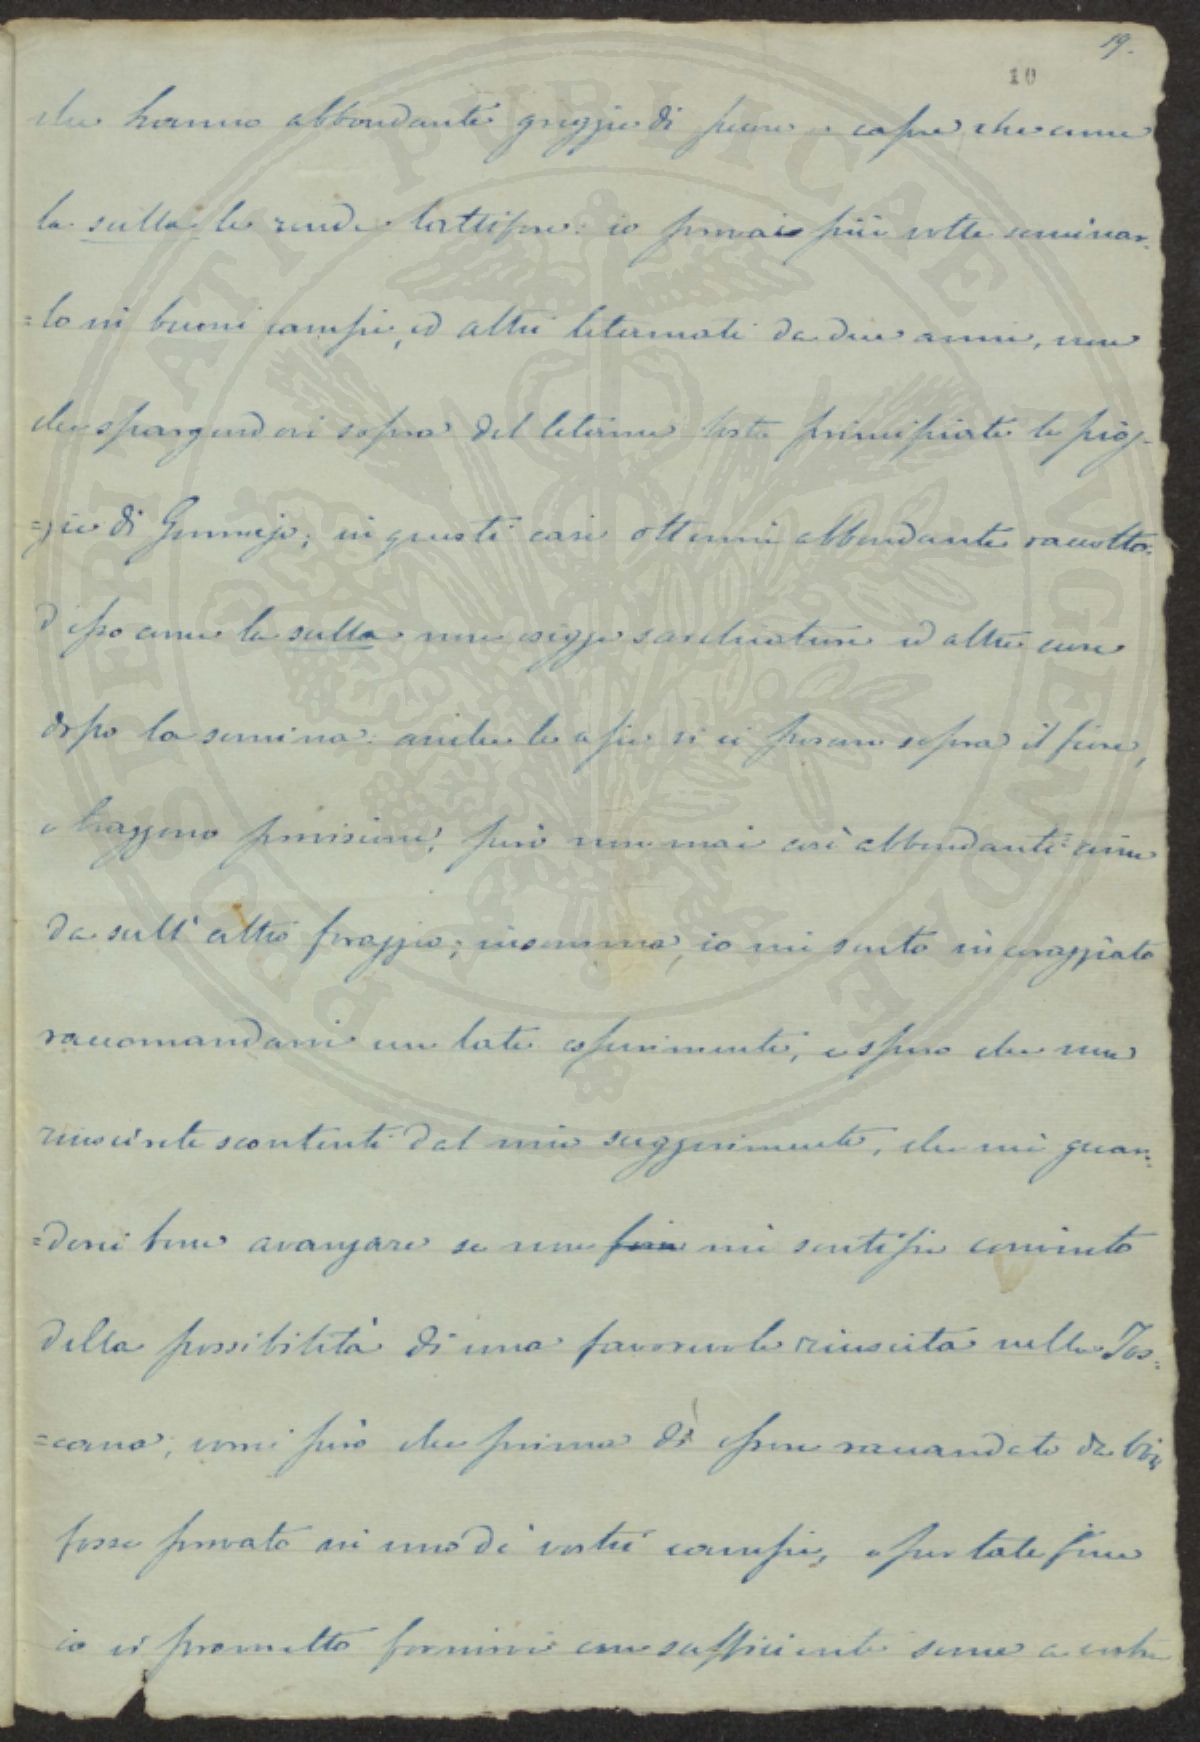 19.
10
che hanno abbondante greggie di pecore e capre che come
la sulla le rende lattifere: io provai più volte seminar-
=lo in buoni campi, ed altri letamati da due anni, non
che spargendovi sopra del letame tosto principiate le piog-
=gie di Gennajo; in questi casi ottenni abbondante raccolto.
d'esso come la sulla non esigge sarchiature ed altre cure
dopo la semina: anche le api si ci posano sopra il fiore,
e traggono provisioni, però non mai così abbondanti come
da sull'altro foraggio; insomma, io mi sento incoraggiato
raccomandarvi un tale esperimento, e spero che non
riuscirete scontenti dal mio suggerimento, che mi guar-
=derei bene avanzare se non mi sentissi convinto
della possibilità di una favorevole riuscita nella Tos-
=cana; vorrei però che prima di essere raccomandato da Voi
fosse provato in uno di vostri campi, e per tale fine
io vi prometto fornirvi con sufficiente seme a vostra